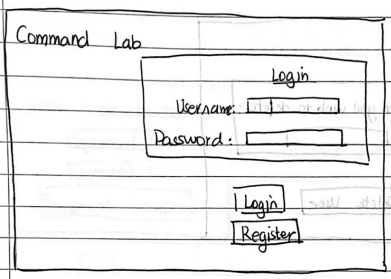 Command Lab
Login
Username:
Password:
Login
Register